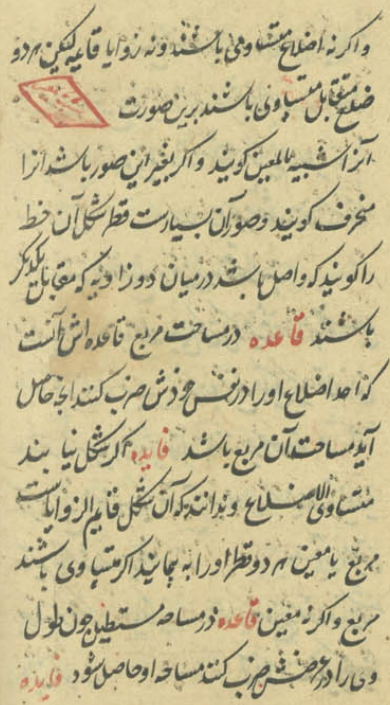 و اگر نه اضلاع متساوی باشند و نه زوایا قایمه لیکن هر دو
ضلع متقابل متساوی باشند برین صورت
آنرا شبیه بالمعین گویند و اگر بغیر این صور باشد انرا
منحرف گویند و صور آن بسیارست قطر شکل آن خط
را گویند که واصل باشد در میان دو زاویه که مقابل یکدیگر
باشند قاعده در مساحت مربع قاعده اش آنست
که احد اضلاع او را در نفس خودش ضرب کنند انچه حاصل
آید مساحت آن مربع باشد فایده اگر شکل نیابند
متساوی الاضلاع و ندانند که آن شکل قایم الزوایاست
مربع یا معین هر دو قطر او را به پیمایند اگر متساوی باشند
مربع و اگر نه معین قاعده در مساحه مستطیل چون طول
و را در عرضش ضرب کنند مساحه او حاصل شود فایده